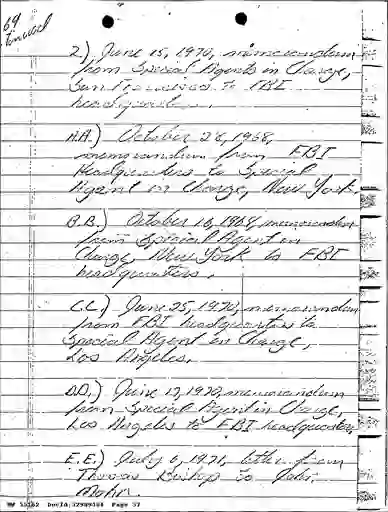 69
Z.) June 15, 1970, memorandum
from Special Agents in Charge,
San Francisco to FBI
headquarters.
A.A.) October 28, 1968,
memorandum from FBI
Headquarters to Special
Agent in Charge, New York.
B.B.) October 16, 1968, memorandum
from Special Agent in
Charge, New York to FBI
headquarters.
C.C.) June 25, 1970, memorandum
from FBI headquarters to
Special Agent in Charge,
Los Angeles.
D.D.) June 17, 1970, memorandum
from Special Agent in Charge,
Los Angeles to FBI headquarters
E.E.) July 6, 1971, letter from
Thomas Bishop to John
Mohr.
DocId:32989488 Page 37